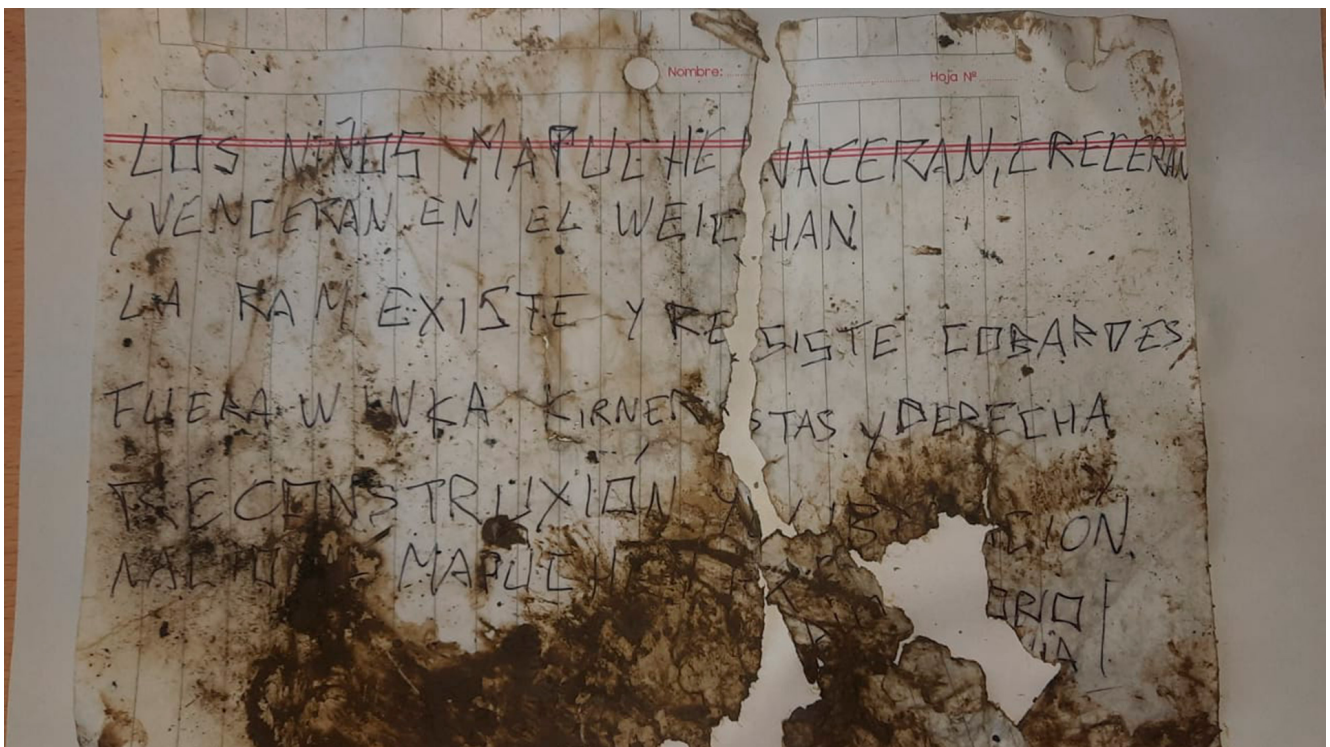 Nombre: Hoja Nº
LOS NIÑOS MAPUCHE NACERAN, CRECERAN
Y VENCERAN EN EL WEICHAN
LA RAM EXISTE Y RESISTE COBARDES
FUERA WINKA KIRNERISTAS Y DERECHA
RECONSTRUXIÓN Y
MAPUCHE